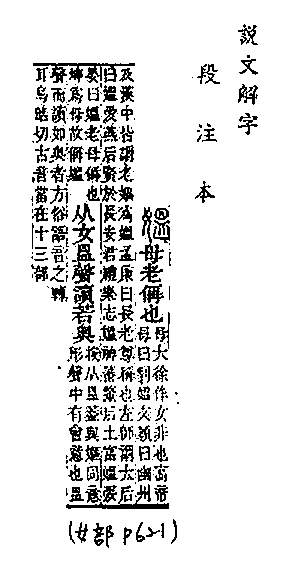 說文解字
段注本
媼母老偁也母大徐作女非也高帝
母曰劉媼文穎曰幽州
及漢中皆謂老嫗為媼孟康曰長老尊稱也左師謂大后
曰媼愛燕后賢於長安君禮樂志媼神蕃釐后土富媼張
晏曰媼老母偁也
坤為母故偁媼
从女𥁕聲讀若奧
按从𥁕蓋與嫗同意
形聲中有會意也𥁕
聲而讀如奧者方俗語音之轉
耳烏皓切古音當在十三部
(女部 p621)